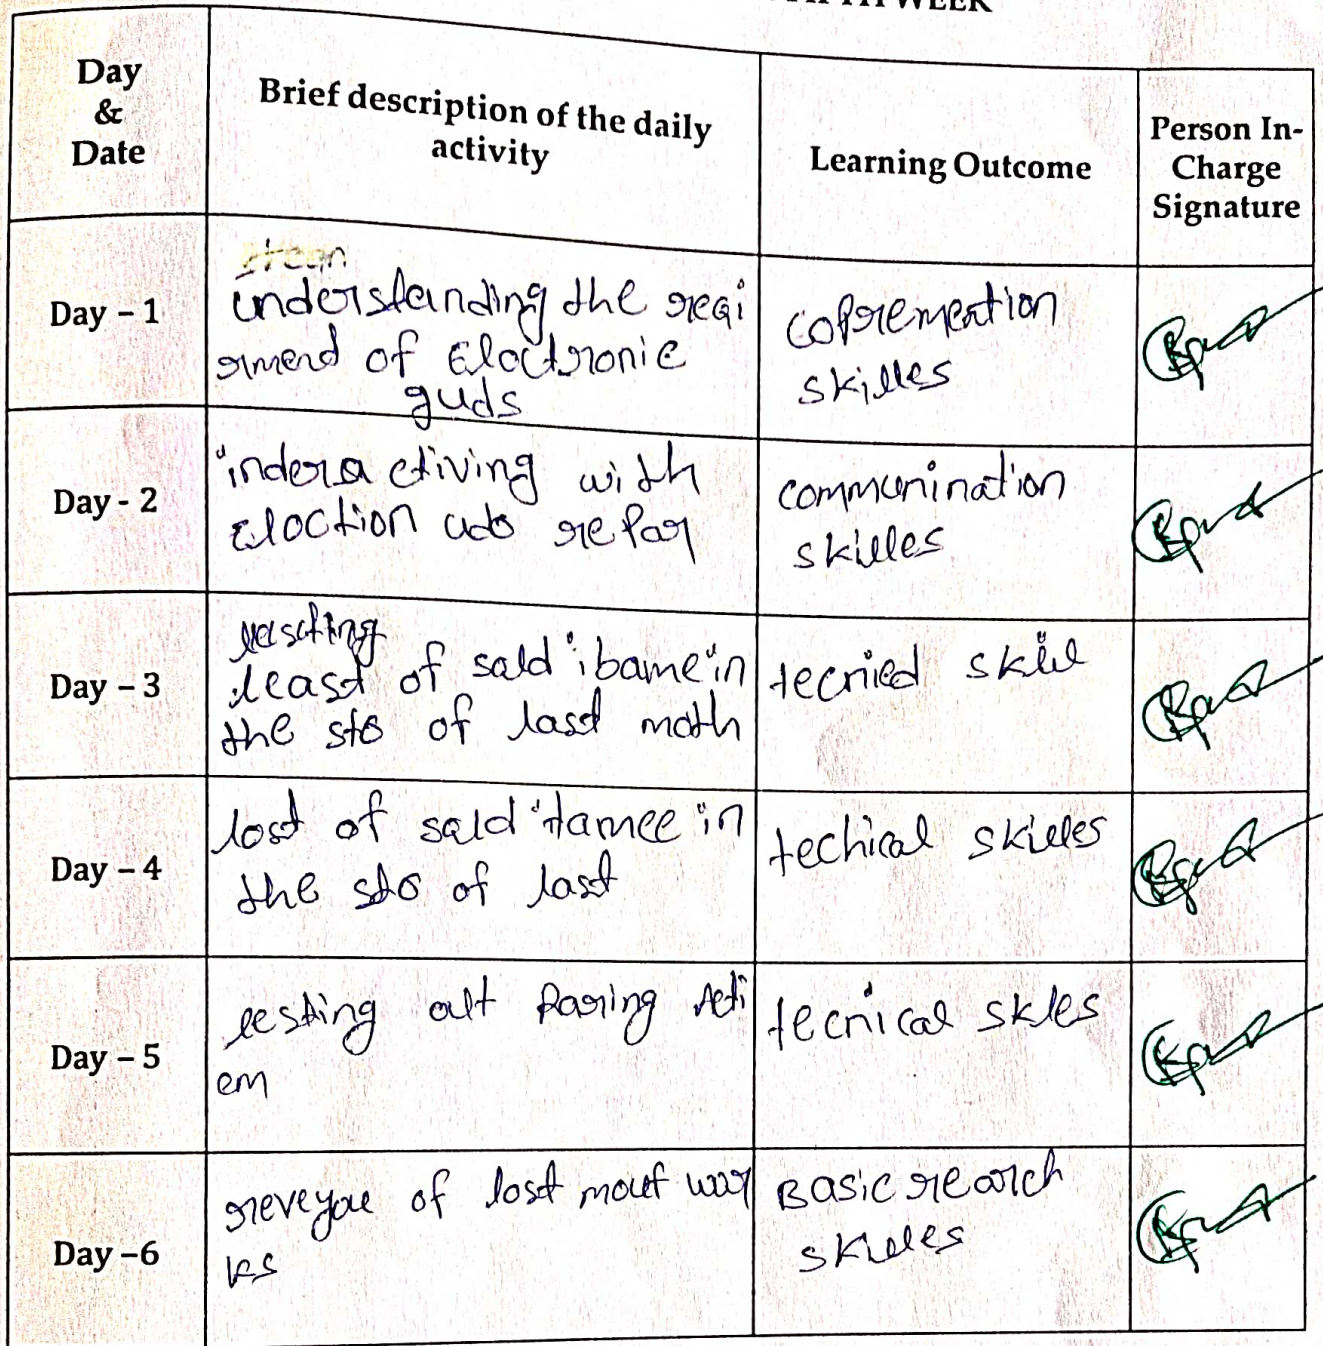 WEEK
Day & Date
Brief description of the daily activity
Learning Outcome
Person In-Charge Signature
Day – 1
understanding the reqi
rmend of Eloctronic
guds
copremention
skilles
Day - 2
inderactiving with
Eloction ads repar
communination
skilles
Day – 3
least of sald ibame in
the sto of last moth
tecnied skill
Day – 4
lost of sald itamee in
the sto of last
techical skilles
Day – 5
eesting out Paring Aeti
em
tecnical skles
Day –6
reveyoe of lost mouf wor
ks
Basic rearch
skilles